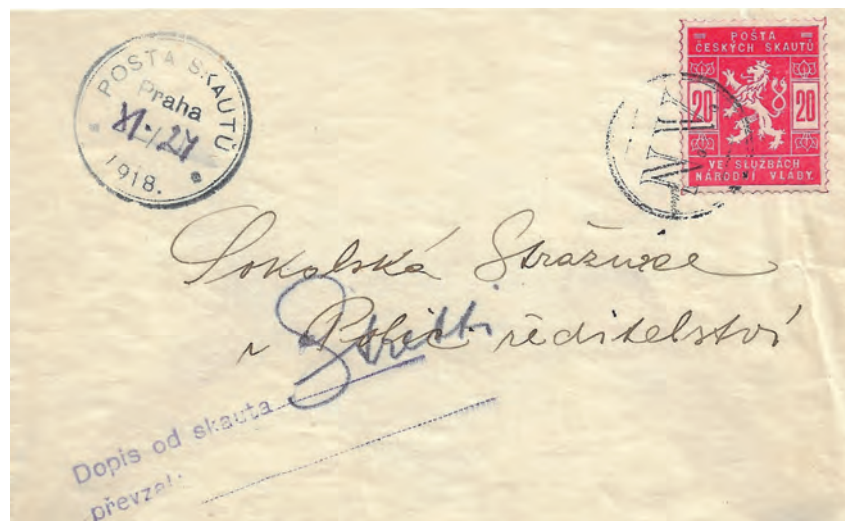 POŠTA SKAUTŮ
Praha
1918.
POŠTA
ČESKÝCH SKAUTŮ
20 20
VE SLUŽBÁCH
NÁRODNÍ VLÁDY.
N.V.
Sokolská Strážnice
v Polic. ředitelství
Dopis od skauta
převzal: